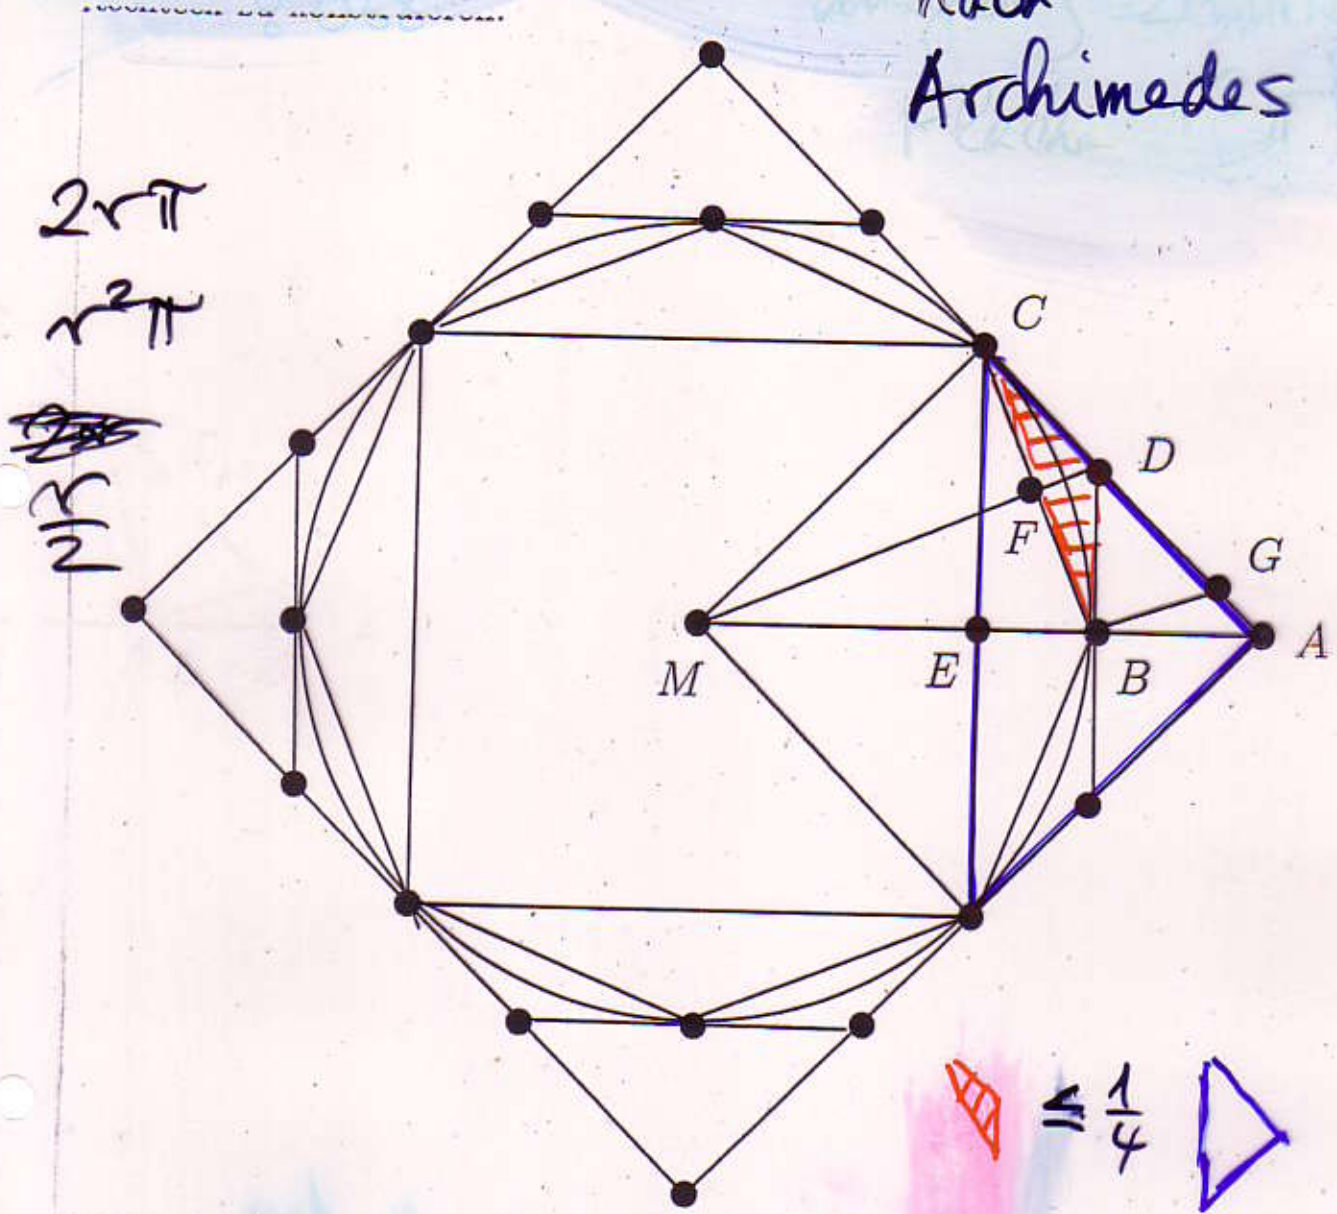 Archimedes
2rπ
r²π
r/2
C
D
F
G
M
E
B
A
≤ 1/4